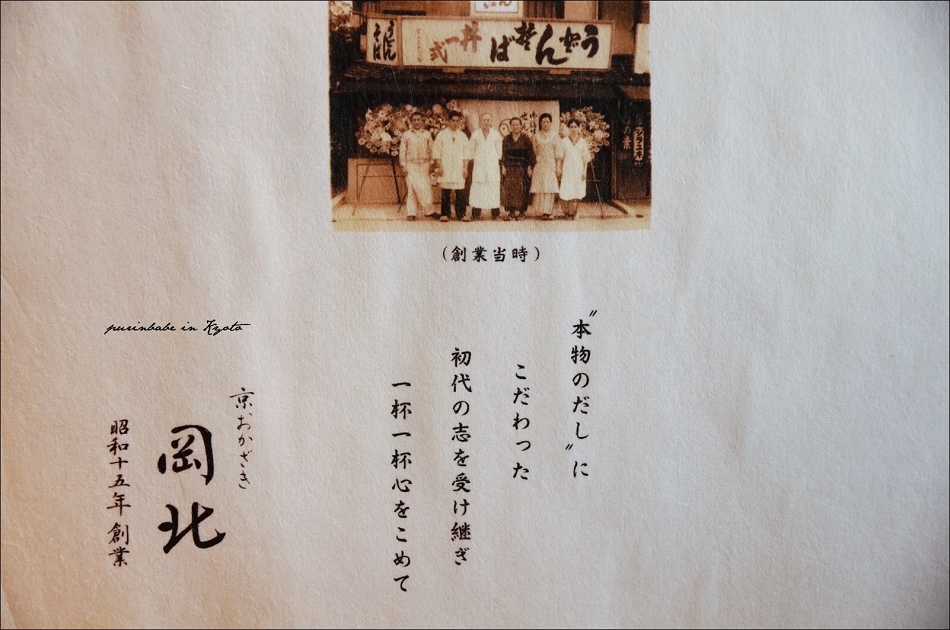 うどん
そば
うどん
そば
丼一式
(創業当時)
〝本物のだし〟に
こだわった
初代の志を受け継ぎ
一杯一杯心をこめて
京おかざき
岡北
昭和十五年創業
purinbabe in Kyoto